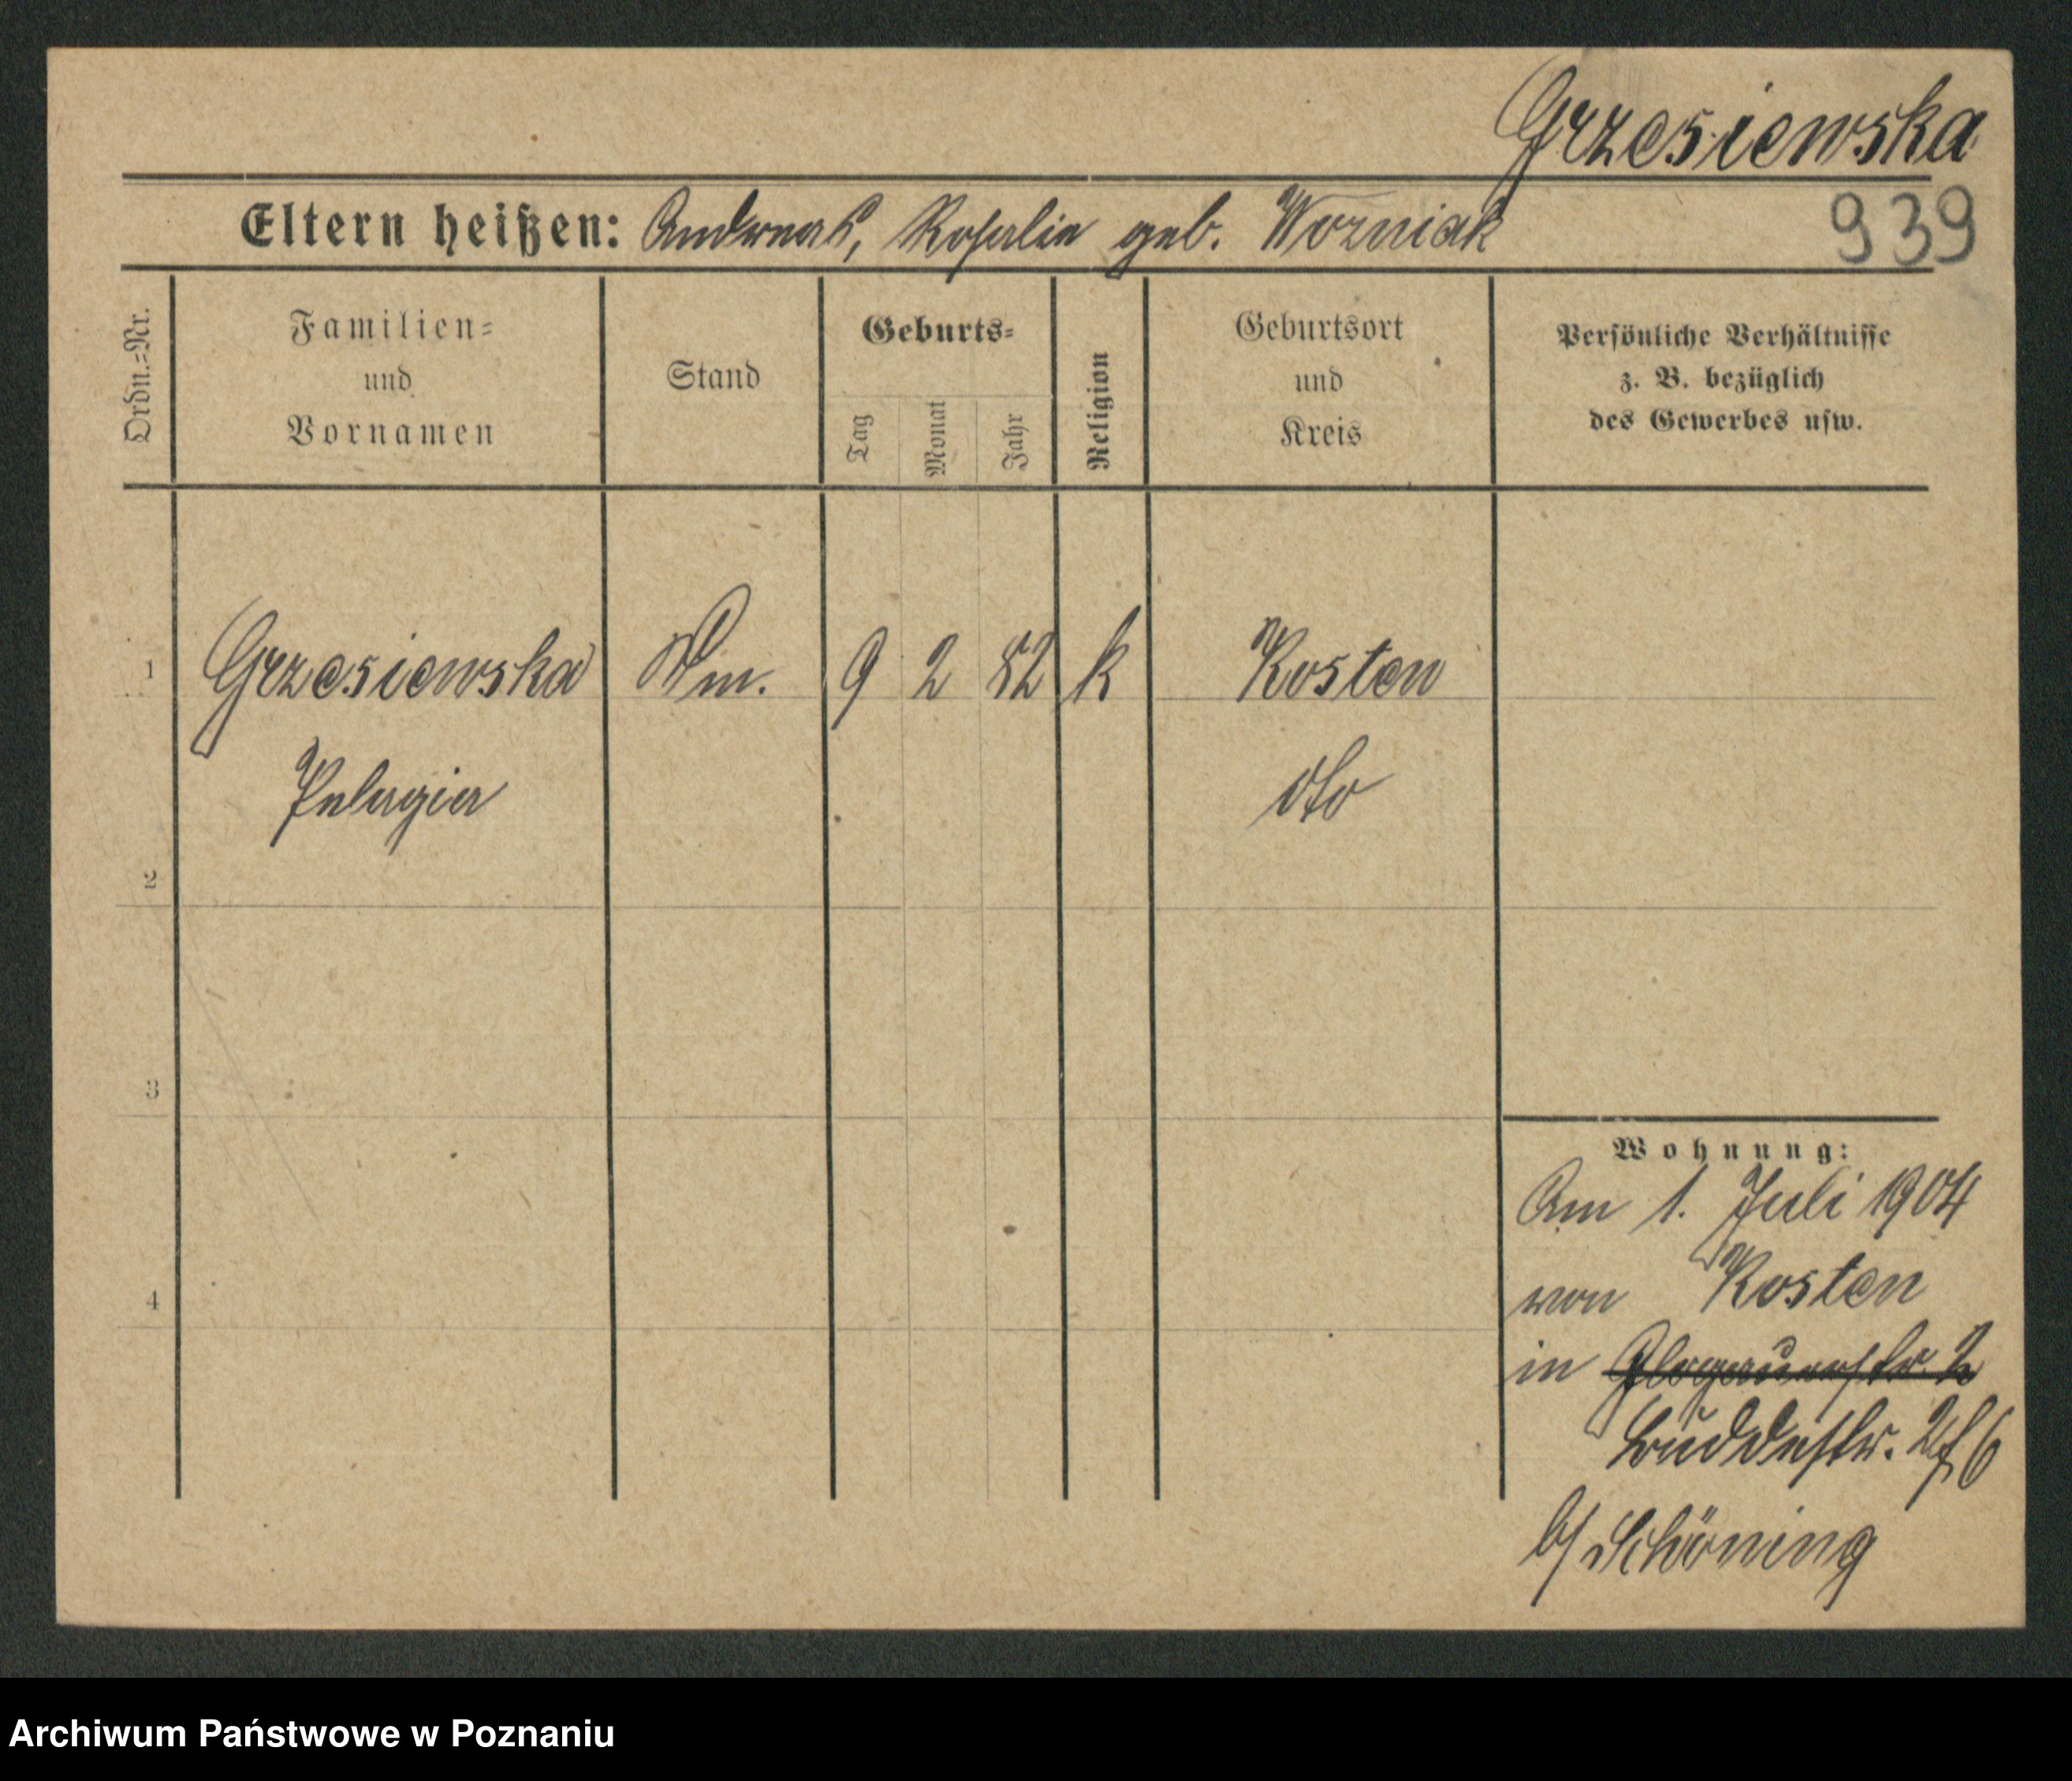 Grzesiewska
Eltern heißen: Andreas, Rosalie geb. Wozniak
939
Ordn.=Nr.
Familien=
und
Vornamen
Stand
Geburts=
Tag
Monat
Jahr
Religion
Geburtsort
und
Kreis
Persönliche Verhältnisse
z. B. bezüglich
des Gewerbes usw.
1 Grzesiewska 9 2 82 k Kosten
Pelagia dto
2
3
4
Wohnung:
Am 1. Juli 1904
von Kosten
in Glogauerstr. 
Buddestr.
b/ Schöning
Archiwum Państwowe w Poznaniu